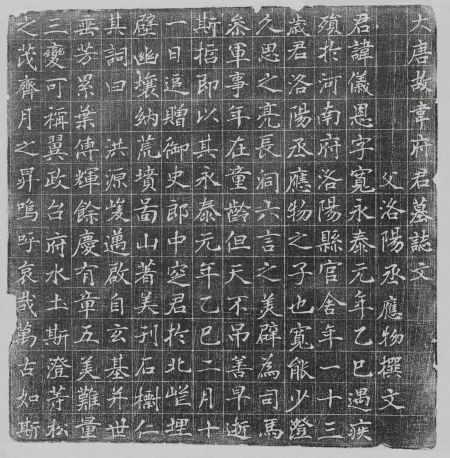 大唐故韋府君墓誌文
父洛陽丞應物撰文
君諱儀恩字寬永泰元年乙巳遇疾
殯於河南府洛陽縣官舍年一十三
歲君洛陽丞應物之子也寬能少澄
久思之亮長洞六言之美辟為司馬
參軍事年在童齡但天不吊善早逝
斯哲即以其永泰元年乙巳二月十
一日追贈御史郎中窆君於北邙埋
壁幽壤納荒墳啚山著美刊石樹仁
其詞曰 洪源峻邁啟自玄基并世
垂芳累葉傳輝餘慶有章五美難量
三變可稱翼政台府水土斯澄等松
之茂齊月之昇嗚呼哀哉萬古如斯